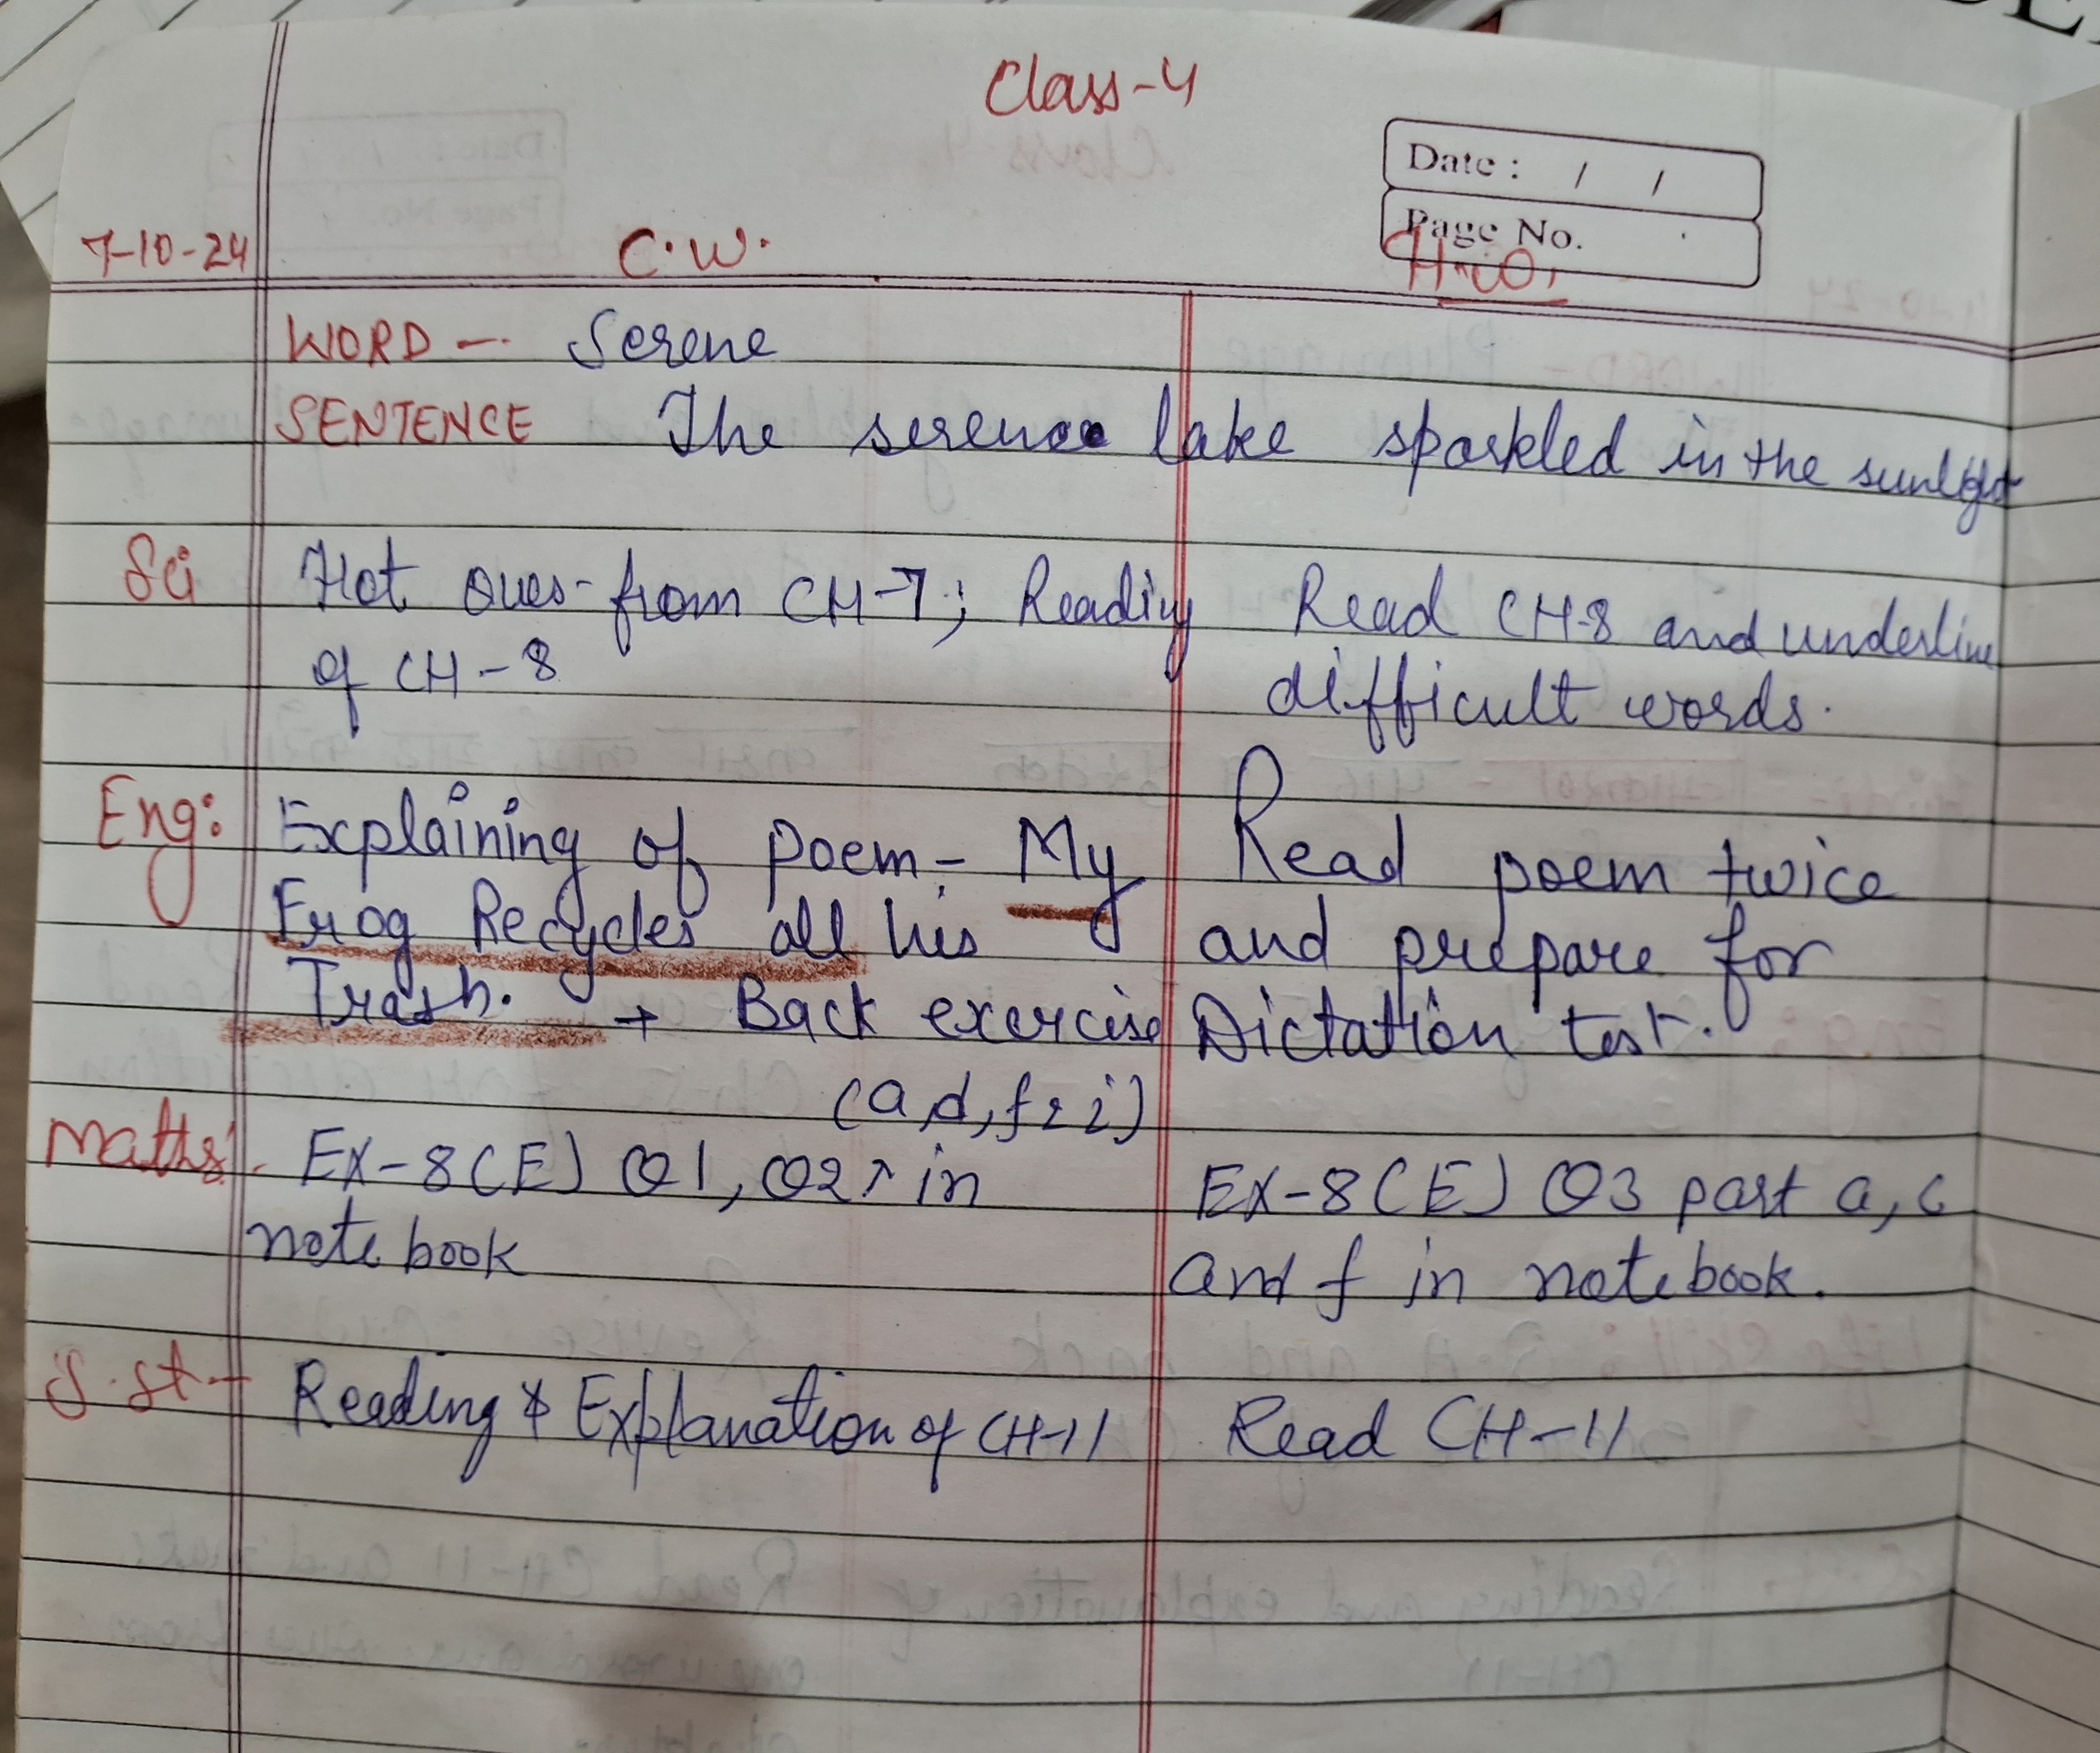 Class-4
Date : / /
Page No.
7-10-24 C.W. H.W.
WORD - Serene
SENTENCE The serene lake sparkled in the sunlight
Sci Hot Ques- from CH-7; Reading Read CH-8 and underline
of CH-8 difficult words.
Eng: Explaining of poem - My Read poem twice
Frog Recycles all his and prepare for
Trash. + Back exercise Dictation test.
(a,d,f & i)
Maths - Ex-8(E) Q1, Q2 in Ex-8(E) Q3 part a, c
notebook and f in notebook.
S.st - Reading & Explanation of CH-11 Read CH-11